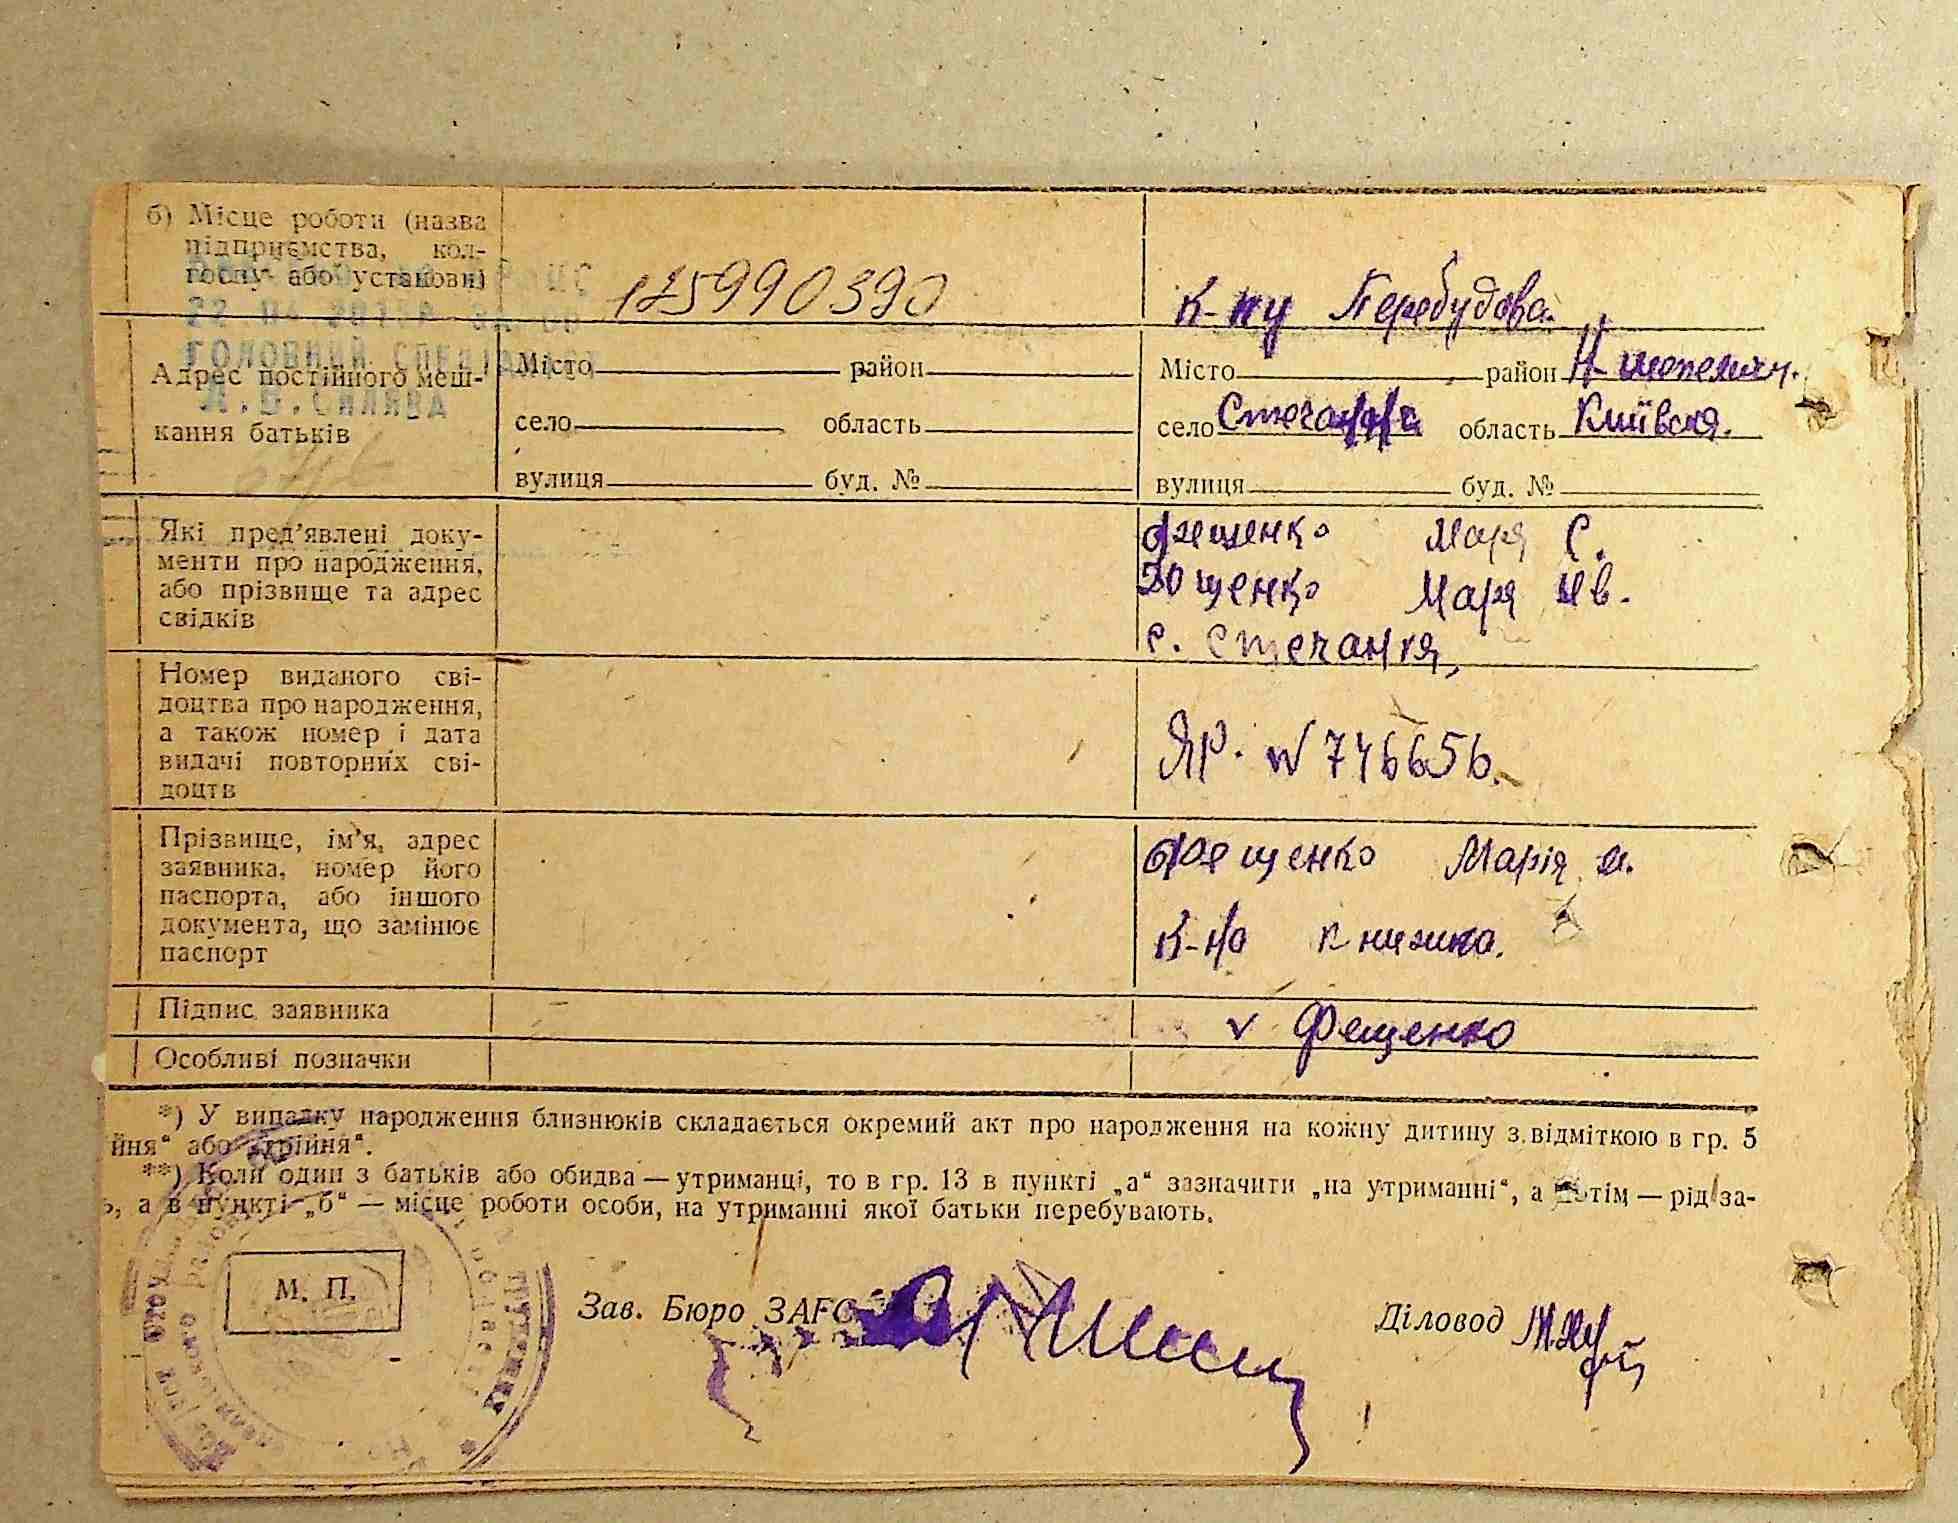 б) Місце роботи (назва
підприємства, кол-
госпу або установи)
175990390
К-пу Перебудова
22.04.2013
ГОЛОВНИЙ СПЕЦІАЛІСТ
Адрес постійного меш-
кання батьків
Місто район
село область
вулиця буд. №
Місто район Н шепелич.
село Стечанка область Київская.
вулиця буд. №
Які пред'явлені доку-
менти про народження,
або прізвище та адрес
свідків
Фещенко Маря С.
Ющенко Маря Ив.
с. Стечанка,
Номер виданого сві-
доцтва про народження,
а також номер і дата
видачі повторних сві-
доцтв
ЯР. N 746656.
Прізвище, ім'я, адрес
заявника, номер його
паспорта, або іншого
документа, що замінює
паспорт
Фещенко Марія И.
К-на книжка.
Підпис заявника
v Фещенко
Особливі позначки
*) У випадку народження близнюків складається окремий акт про народження на кожну дитину з відміткою в гр. 5
йня“ або „трійня“.
**) Коли один з батьків або обидва — утриманці, то в гр. 13 в пункті „а“ зазначити „на утриманні“, а потім — рід за-
ь, а в пункті „б“ — місце роботи особи, на утриманні якої батьки перебувають.
М. П.
Зав. Бюро ЗАГС
Діловод